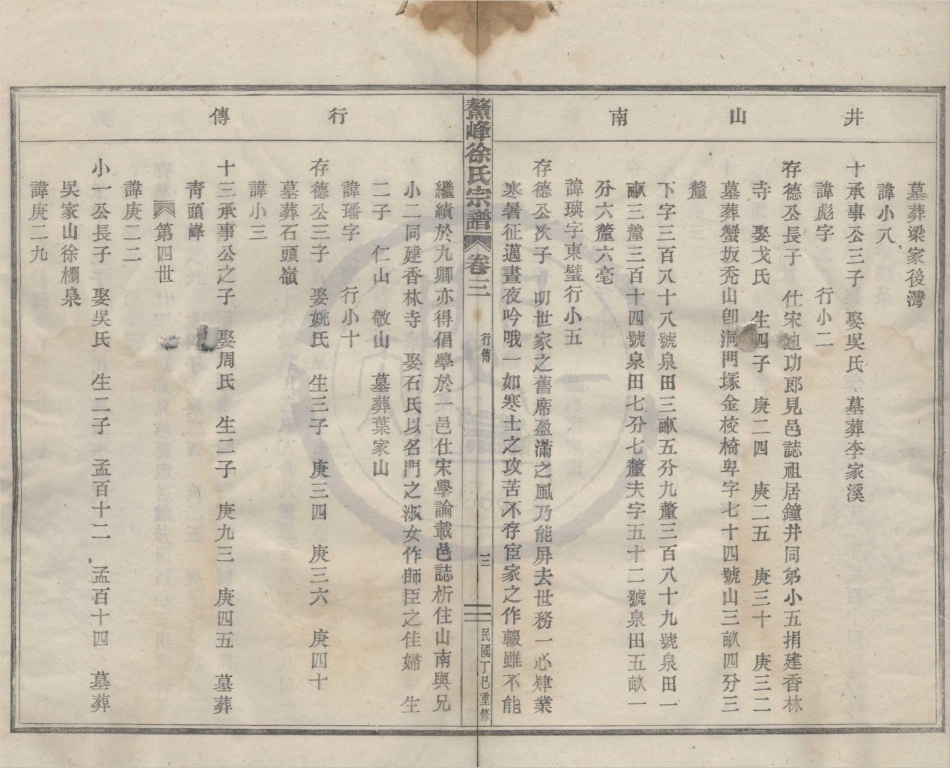 井　山　南
墓葬梁家後灣
諱小八
十承事公三子　娶吳氏　墓葬李家溪
諱彪字　行小二
存德公長子　仕宋廸功郎見邑誌祖居鐘井同弟小五捐建香林
寺　娶戈氏　生四子　庚二四　庚二五　庚三十　庚三二
墓葬蟹坂禿山卽洞門塚金棱椅卑字七十四號山三畝四分三
釐
下字三百八十八號泉田三畝五分九釐三百八十九號泉田一
畝三釐三百十四號泉田七分七釐夫字五十二號泉田五畝一
分六釐六毫
諱璵字東璧行小五
存德公次子　明世家之舊席盈滿之風乃能屏去世務一心肄業
寒暑征邁晝夜吟哦一如寒士之攻苦不存宦家之作輟雖不能
鰲峰徐氏宗譜　卷三　行傳　三　民國丁巳重修
行　傳
繼績於九卿亦得倡學於一邑仕宋學諭載邑誌析住山南與兄
小二同建香林寺　娶石氏以名門之淑女作師臣之佳婦　生
二子　仁山　敬山　墓葬葉家山
諱璠字　行小十
存德公三子　娶姚氏　生三子　庚三四　庚三六　庚四十
墓葬石頭嶺
諱小三
十三承事公之子　娶周氏　生二子　庚九三　庚四五　墓葬
靑頭峰
第四世
諱庚二二
小一公長子　娶吳氏　生二子　孟百十二　孟百十四　墓葬
吳家山徐櫊臬
諱庚二九